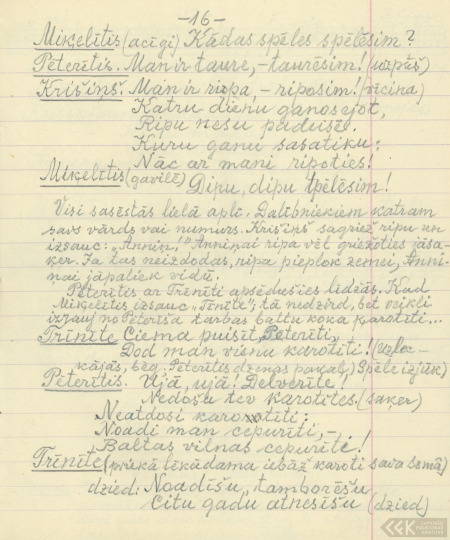 -16-
Miķelītis (acīgi) Kādas spēles spēlēsim?
Pēterītis. Man ir taure, - taurēsim! (uzpūš)
Krišiņš. Man ir ripa, - riposim! (vicina)
Katru dienu ganosejot,
Ripu nesu padusē.
Kuru ganu sasatiku:
Nāc ar mani ripoties!
Miķelītis (gavilē) Dipu, dipu spēlēsim!
Visi sasēstās lielā aplī. Dalībniekiem katram
savs vārds vai numurs. Krišiņš sagriež ripu un
izsauc: „Anniņ!" Anniņai ripa vēl griežoties jāsa-
ķer. Ja tas neizdodas, ripa pieplok zemei, Anni-
ņai jāpaliek vidū.
Pēterītis ar Trīnīti apsēdušies līdzās. Kad
Miķelītis izsauc „Tīnīte", tā nedzird, bet veikli
izrauj no Pēterīša tarbas baltu koka karotīti...
Trīnīte Ciema puisīt, Pēterīti,
Dod man vienu karotīti! (Uzle-
kājas, bēg. Pēterītis dzenas pakaļ.) Spēle izjūk)
Pēterītis. Ujā, ujā! Delverīte!
Nedošu tev karotītes. (saķer)
Neatdosi karotīti:
Noadi man cepurīti, -,
Baltas vilnas cepurīte!
Trīnīte (priekā lēkādama iebāž karoti sava somā)
dzied: Noadīšu, tamborēšu
Citu gadu atnesīšu (dzied)
LATVIEŠU FOLKLORAS KRĀTUVE